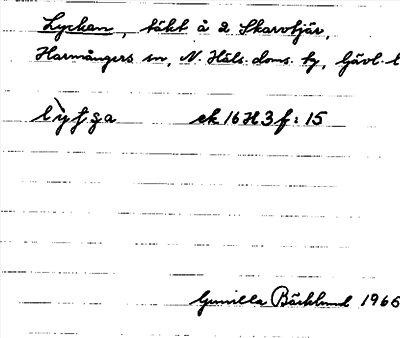 Lyckan, täkt å 2 Skarvtjär,
Harmångers sn, N. Häls. doms. tg, Gävl. l
lỳf g a ek 16 H 3 f : 15
Gunilla Bäcklund 1966